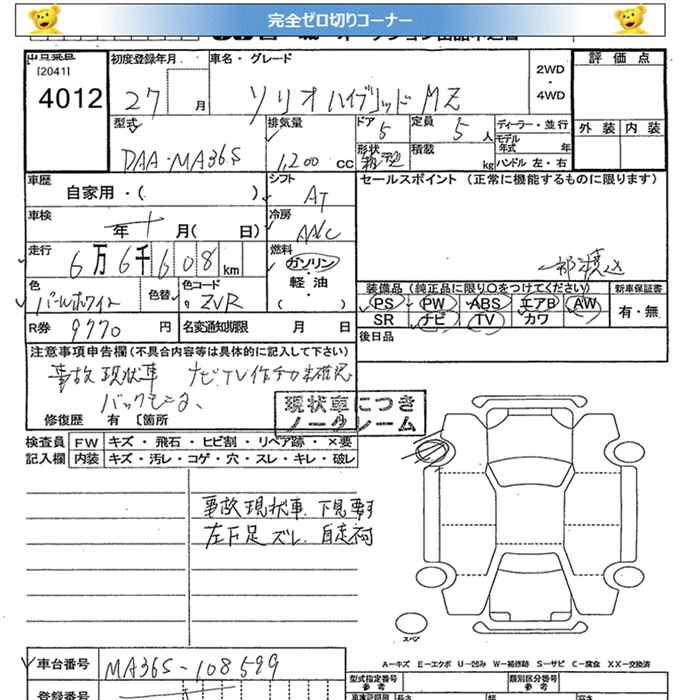 完全ゼロ切りコーナー
[2041]
4012
初度登録年月
27 月
車名・グレード
ソリオハイブリッド MZ
2WD
・
4WD
評価点
外装 内装
型式
DAA-MA36S
排気量
1,200 CC
ドア
5
定員
5 人
形状
積載
kg
ディーラー・並行
モデル
年式 年
ハンドル 左・右
車歴
自家用・( )
シフト
AT
セールスポイント (正常に機能するものに限ります)
車検
年 月( 日)
冷房
走行
6万6千608 km
燃料
ガソリン
・
軽油
・
( )
色
パールホワイト
色替
色コード
ZVR
装備品(純正品に限り○をつけてください)
PS PW ABS エアB AW
SR ナビ TV カワ
新車保証書
有・無
R券 9770 円
名変通知期限 月 日
後日品
注意事項申告欄(不具合内容等は具体的に記入して下さい)
事故現状車 ナビTV作動未確認
バックモニター、
修復歴 有 〔箇所
現状車につき
ノークレーム
検査員
記入欄
FW キズ・飛石・ヒビ割・リペア跡・×要
内装 キズ・汚レ・コゲ・穴・スレ・キレ・破レ
事故現状車 下見要す
左下足ズレ 自走可
スペア
A─キズ E─エクボ U─凹み W─補修跡 S─サビ C─腐食 XX─交換済
車台番号
MA36S-108599
登録番号
型式指定番号
参考
類別区分番号
参考
長さ
幅
高さ